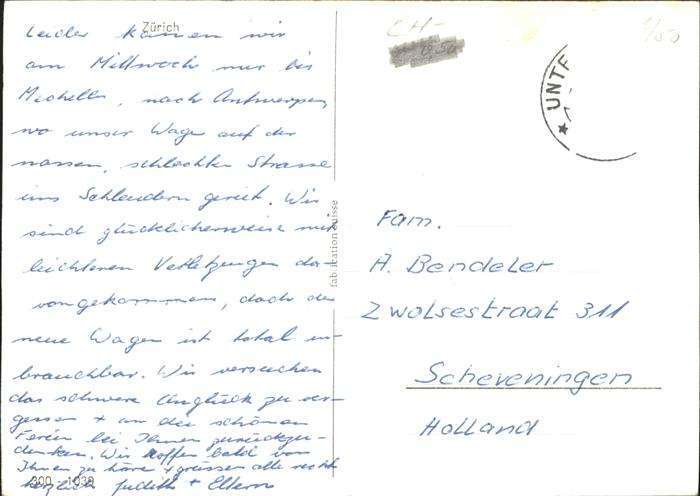 Zürich
Leider kamen wir
am Mittwoch nur bis
Mechelen, nach Antwerpen,
wo unser Wage auf der
nassen, schlechten Strasse
ins Schleudern geriet. Wir
sind glücklicherweise mit
leichteren Verletzungen da-
vongekommen, doch der
neue Wagen ist total un-
brauchbar. Wir versuchen
das schwere Unglück zu ver-
gessen + an die schönen
Ferien bei Ihnen zurückzu-
denken. Wir hoffen bald von
Ihnen zu höre + grüssen alle recht
herzlich Judith + Eltern
300 1039
fabrikation suisse
CH-
0.50
1/50
UNTE
Fam.
A. Bendeler
Zwolsestraat 311
Scheveningen
Holland